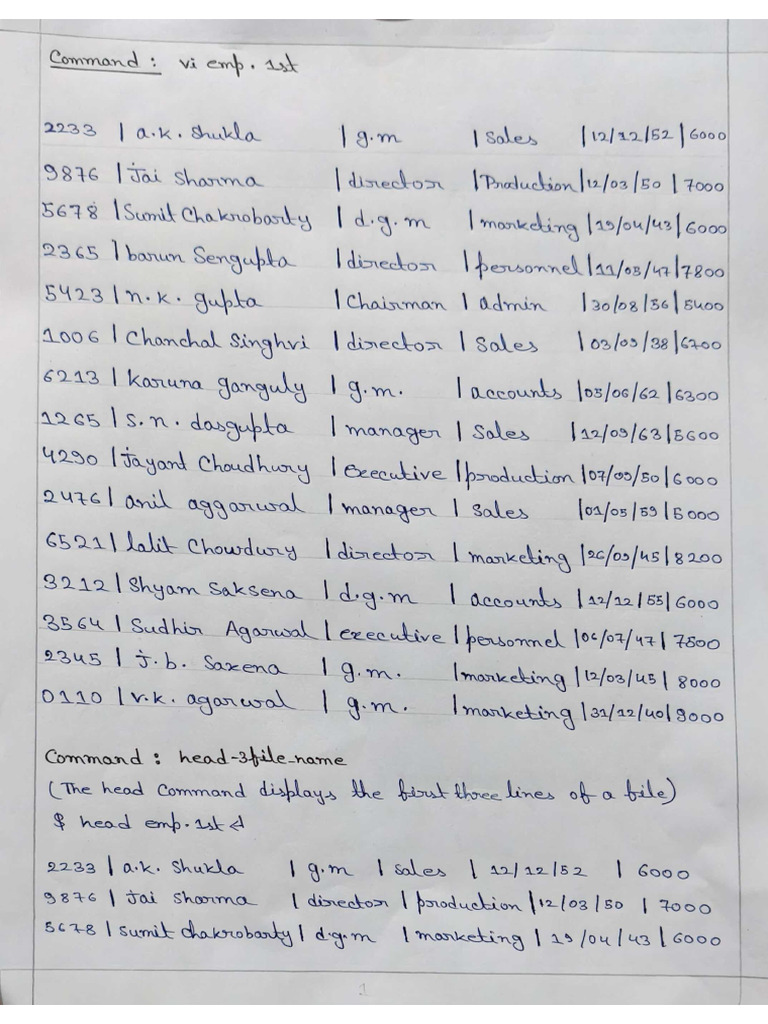 Command : vi emp. 1st
2233 | a.k. Shukla | g.m | Sales | 12/12/52 | 6000
9876 | Jai Sharma | director | Production | 12/03/50 | 7000
5678 | Sumit Chakrobarty | d.g.m | marketing | 19/04/43 | 6000
2365 | barun Sengupta | director | personnel | 11/05/47 | 7800
5423 | n.k. gupta | Chairman | admin | 30/08/56 | 5400
1006 | Chanchal Singhvi | director | Sales | 03/09/38 | 6700
6213 | Karuna ganguly | g.m. | accounts | 05/06/62 | 6300
1265 | S.n. dasgupta | manager | Sales | 12/09/63 | 5600
4290 | Jayant Choudhury | executive | production | 07/09/50 | 6000
2476 | anil aggarwal | manager | Sales | 01/05/59 | 5000
6521 | lalit Chowdury | director | marketing | 26/09/45 | 8200
3212 | Shyam Saksena | d.g.m | accounts | 12/12/55 | 6000
3564 | Sudhir Agarwal | executive | personnel | 06/07/47 | 7500
2345 | J.b. Saxena | g.m. | marketing | 12/03/45 | 8000
0110 | v.k. agarwal | g.m. | marketing | 31/12/40 | 9000
Command : head -3 file_name
(The head Command displays the first three lines of a file)
$ head emp.1st ↵
2233 | a.k. Shukla | g.m | Sales | 12/12/52 | 6000
9876 | Jai Sharma | director | production | 12/03/50 | 7000
5678 | Sumit Chakrobarty | d.g.m | marketing | 19/04/43 | 6000
1